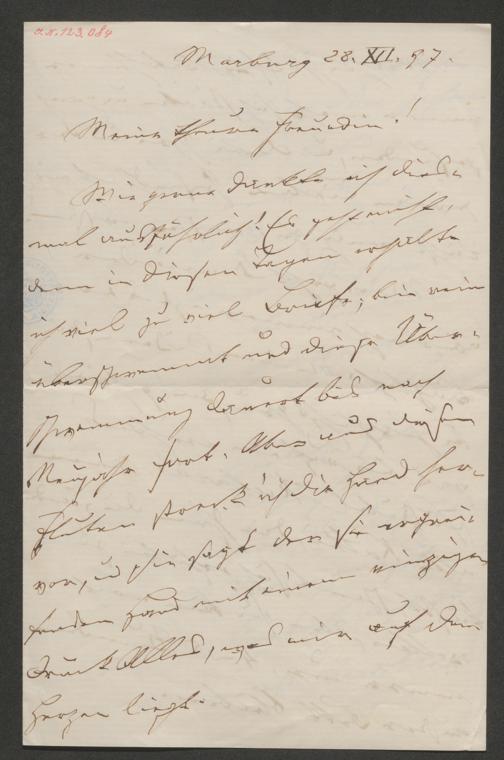 J.N. 123.084
Marburg 28. XII. 97.
Meine theure Freundin!
Wie gerne dankte ich dies-
mal ausführlich! Es geht nicht,
denn in diesen Tagen erhalte
ich viel zu viel Briefe; bin wie
überschwemmt und diese Über-
schwemmung dauert bis nach
Neujahr fort. Aber aus diesen
Fluten streck' ich die Hand her-
vor, und sie sagt der sie ergrei-
fenden Hand mit einem einzigen
Druck Alles, was mir auf dem
Herzen liegt.